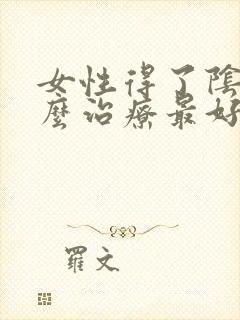 女性得了陰
麼治療最好
羅文